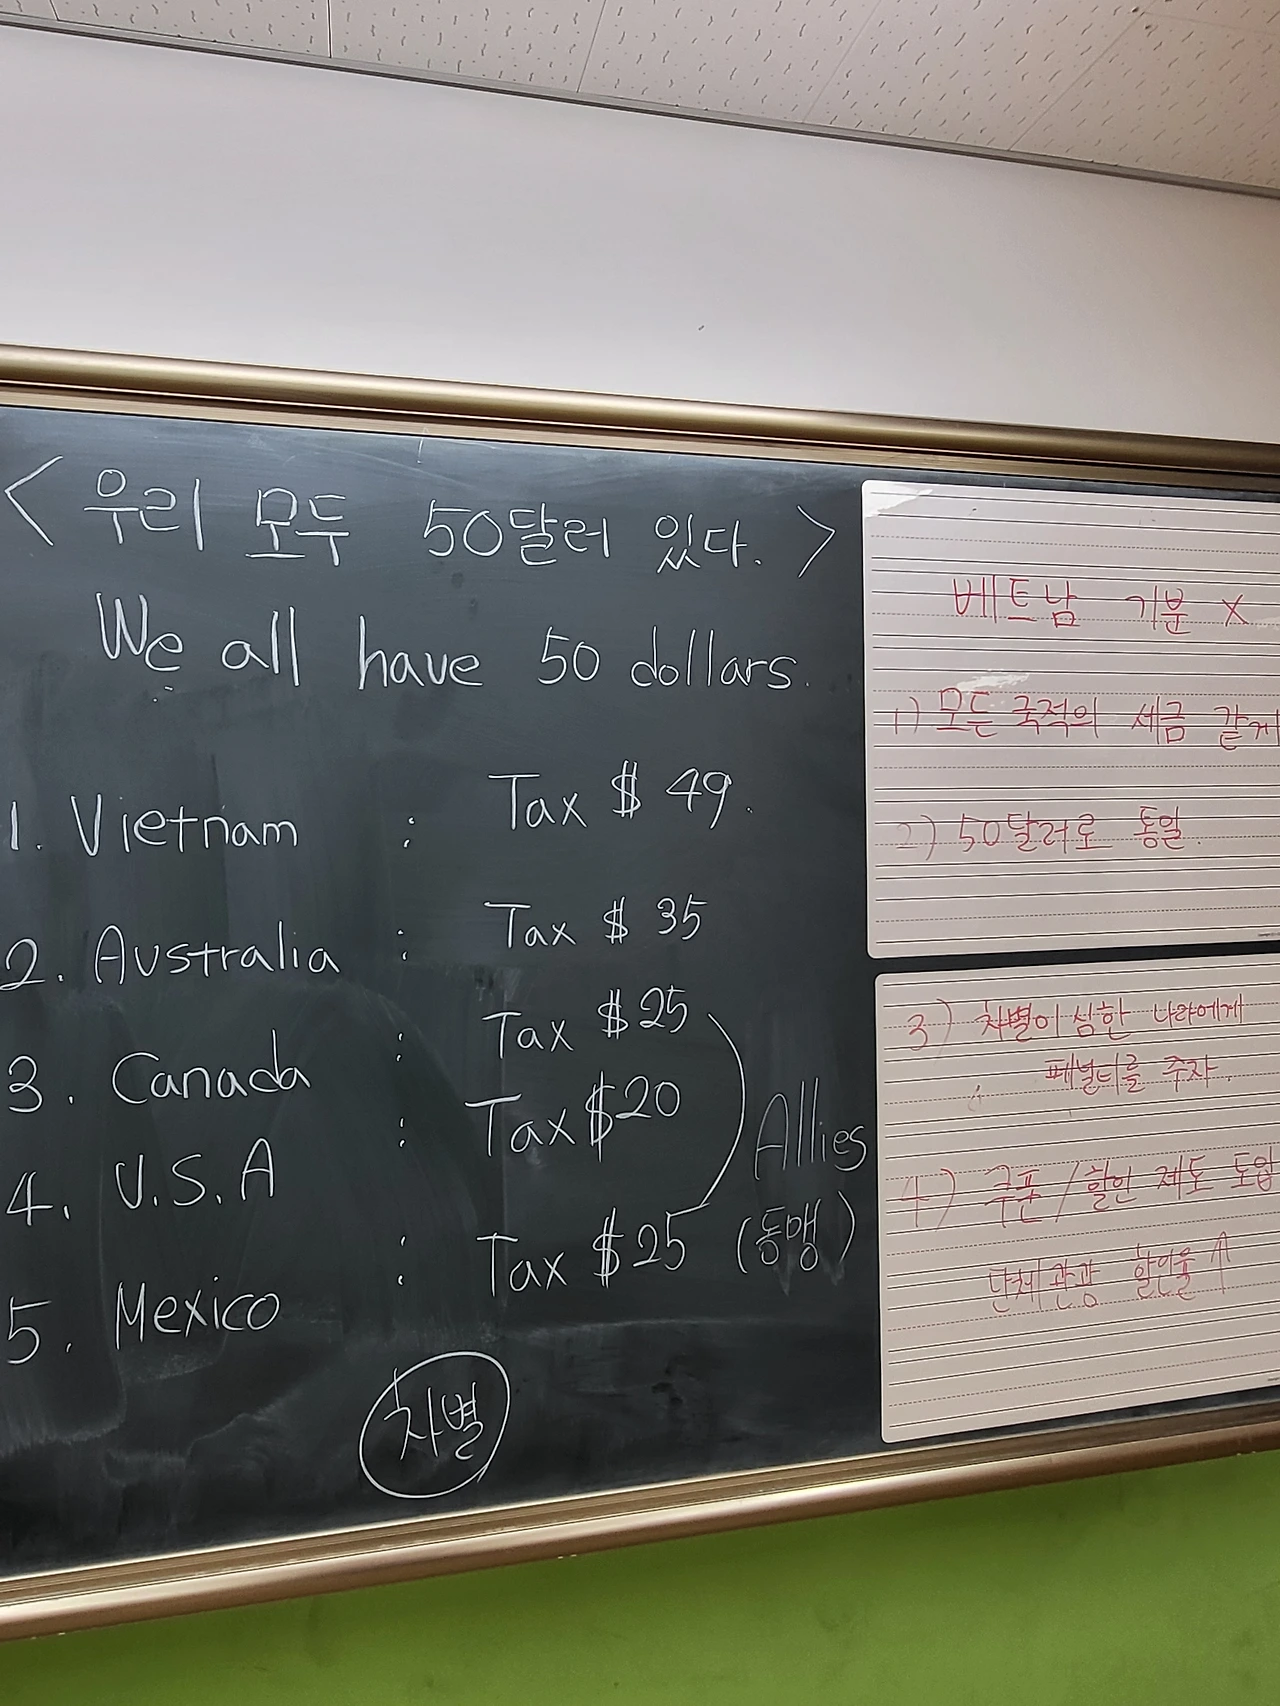 < 우리 모두 50달러 있다. >
We all have 50 dollars.
1. Vietnam : Tax $ 49.
2. Australia : Tax $ 35
3. Canada : Tax $25
4. U.S.A : Tax $20
5. Mexico : Tax $25
Allies
(동맹)
차별
베트남 기분 X
1) 모든 국적의 세금 같게
2) 50달러로 통일.
3) 차별이 심한 나라에게
페널티를 주자.
4) 쿠폰 / 할인 제도 도입
단체관광 할인율 ↑